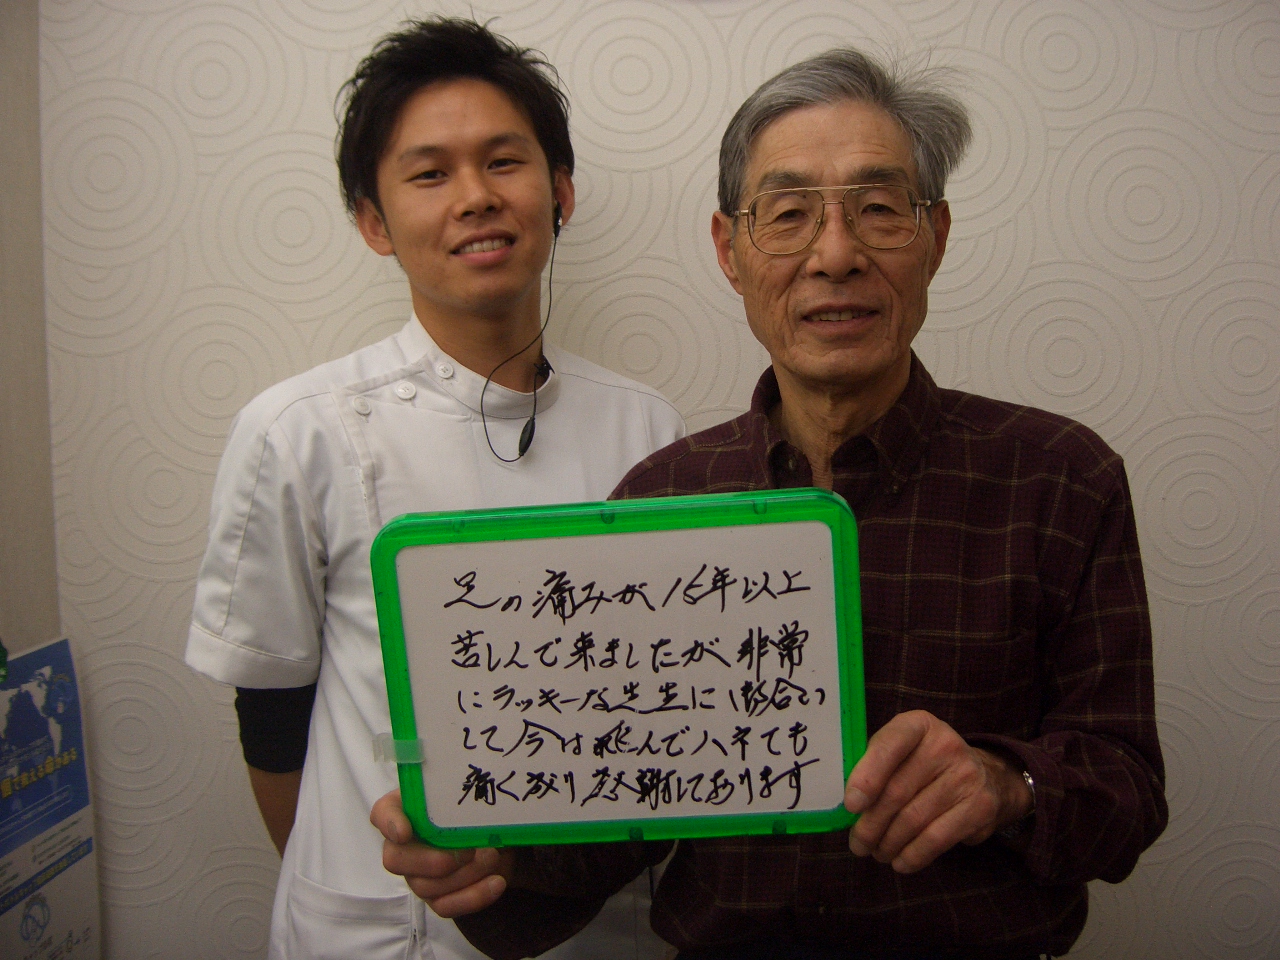 足の痛みが15年以上
苦しんで来ましたが非常
にラッキーな先生に
して今は飛んでハネても
痛くなり感謝しております